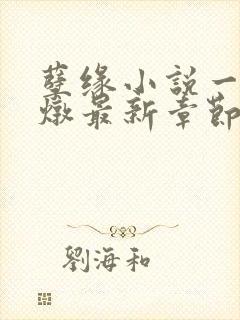 孽缘小說一
燉最新章節
劉海和